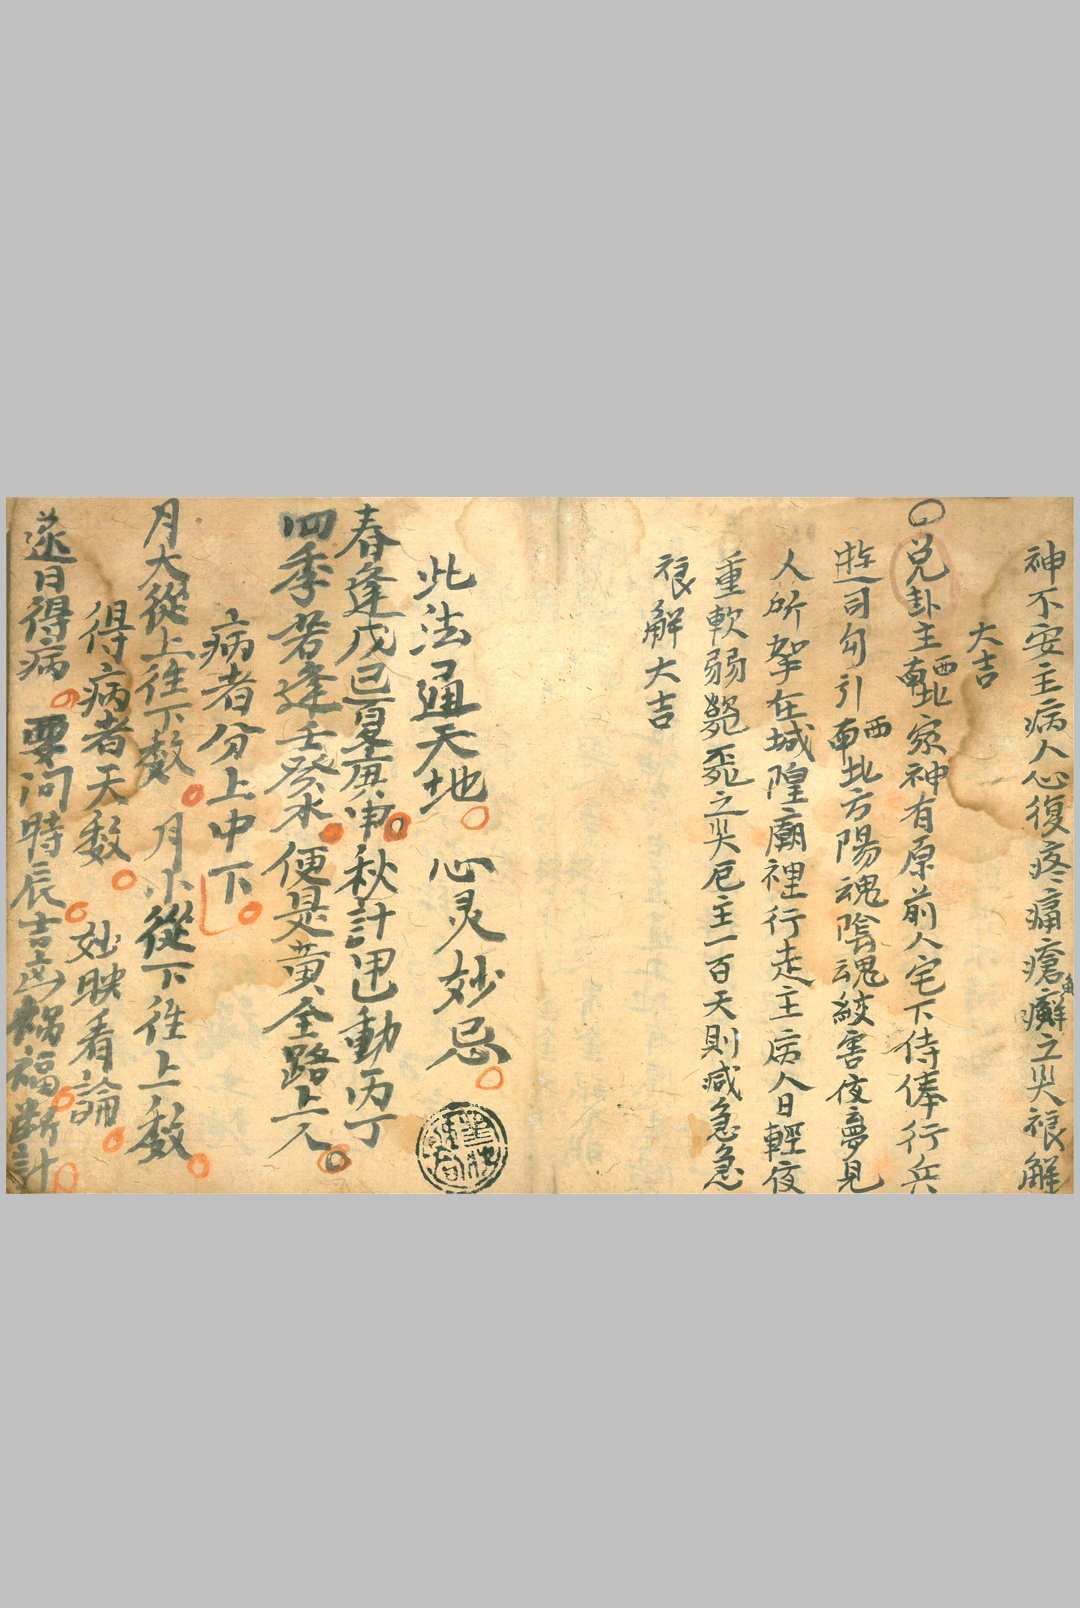 神不安主病人心復疼痛瘡癬之災禳解
大吉
兌卦主西南北家神有原前人宅下侍俸行兵
遊司勾引西南北方陽魂陰魂絞害夜夢見
人所拏在城隍廟裡行走主病人日輕夜
重軟弱之災厄主一百天則减急急
禳解大吉
此法通天地 心灵妙忌
春逢戊己夏庚申秋計逻動丙丁
四季若逢壬癸水便是黃全路上人
病者分上中下
月大從上往下数 月小從下往上数
得病者天数 妙映看論
逐日得病 要问時辰吉凶祸福断計